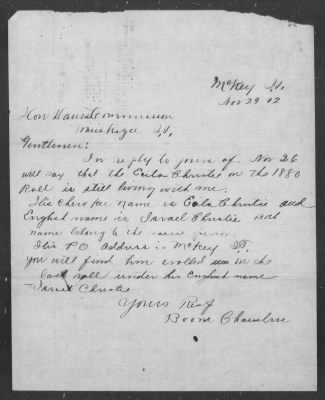 McKey I.T.
Nov 29 02
Hon Dawes Commission
Muskogee I.T.
Gentlemen:
In reply to yours of Nov 26
will say that the Ecela Christie on the 1880
Roll is still living with me.
His Cherokee name is Ecela Christie and
English name is Israel Christie Both
name belong to the same person.
His P.O. Address is McKey I.T.
you will find him enrolled on in the
last roll under his English name
Israel Christie
Yours Resp
Boone Chambers